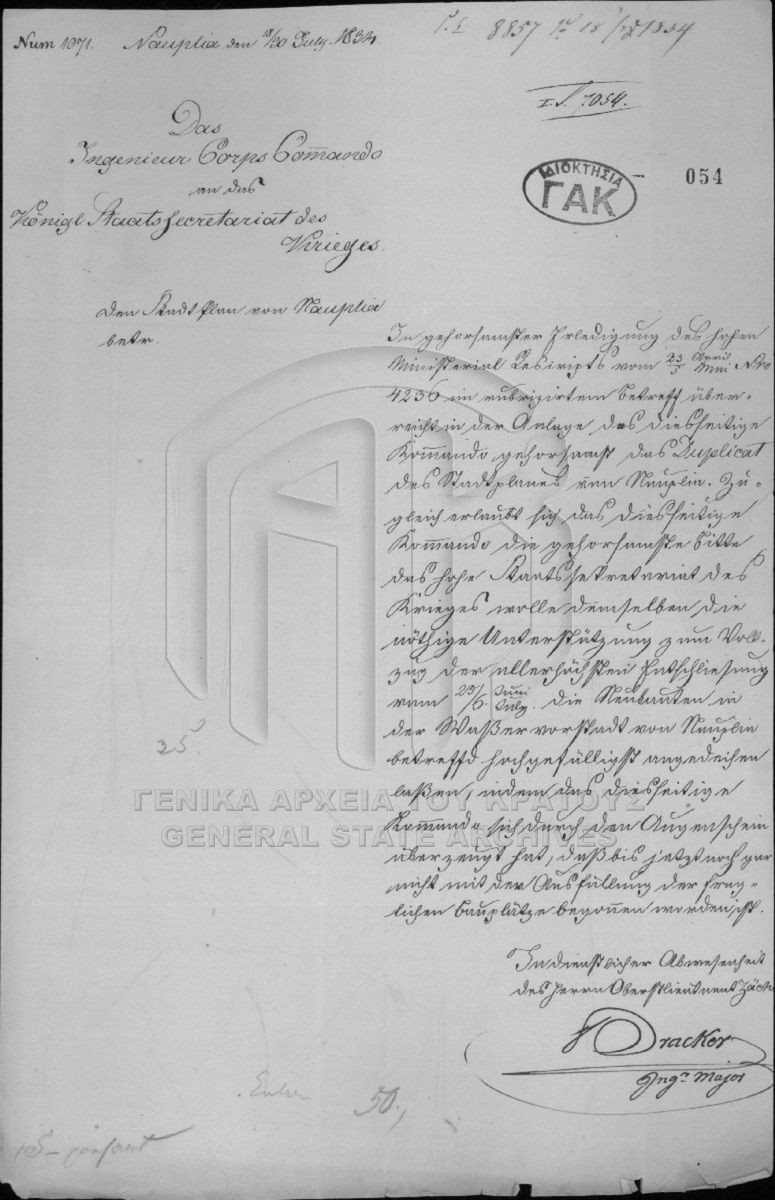 Num 1071. Nauplia den 18/30 July. 1834.
8857
I. S. 1054.
054
ΙΔΙΟΚΤΗΣΙΑ
ΓΑΚ
Das
Ingenieur Corps Com̅ando
an das
Königl Staatssecretariat des
Krieges.
Den Stadt Plan von Nauplia
betr.
In gehorsamster Erledigung des hohen
Ministerial Rescripts vom 23/5 April/Mai Nro
4236 im rubrizirtem Betreff über-
reicht in der Anlage das diesseitige
Kom̅ando gehorsamst das Duplicat
des Stadtplanes von Nauplia. Zu-
gleich erlaubt sich das diesseitige
Kom̅ando die gehorsamste Bitte
das hohe Staatssekretariat des
Krieges wolle demselben die
nöthige Unterstützung zum Voll-
zug der allerhöchsten Entschließung
vom 23/5. Juni/July. die Neubauten in
der Waßervorstadt von Nauplia
betreffd hochgefälligst angedeihen
laßen, indem das diesseitige
Kom̅ando sich durch den Augenschein
überzeugt hat, daß bis jetzt noch gar
nicht mit der Ausfüllung der frag-
lichen Bauplätze begonnen worden ist.
In dienstlicher Abwesenheit
des Herrn Oberstlieutnant
Dracker
Ingr Major
25.
50.,
ΓΕΝΙΚΑ ΑΡΧΕΙΑ ΤΟΥ ΚΡΑΤΟΥΣ
GENERAL STATE ARCHIVES